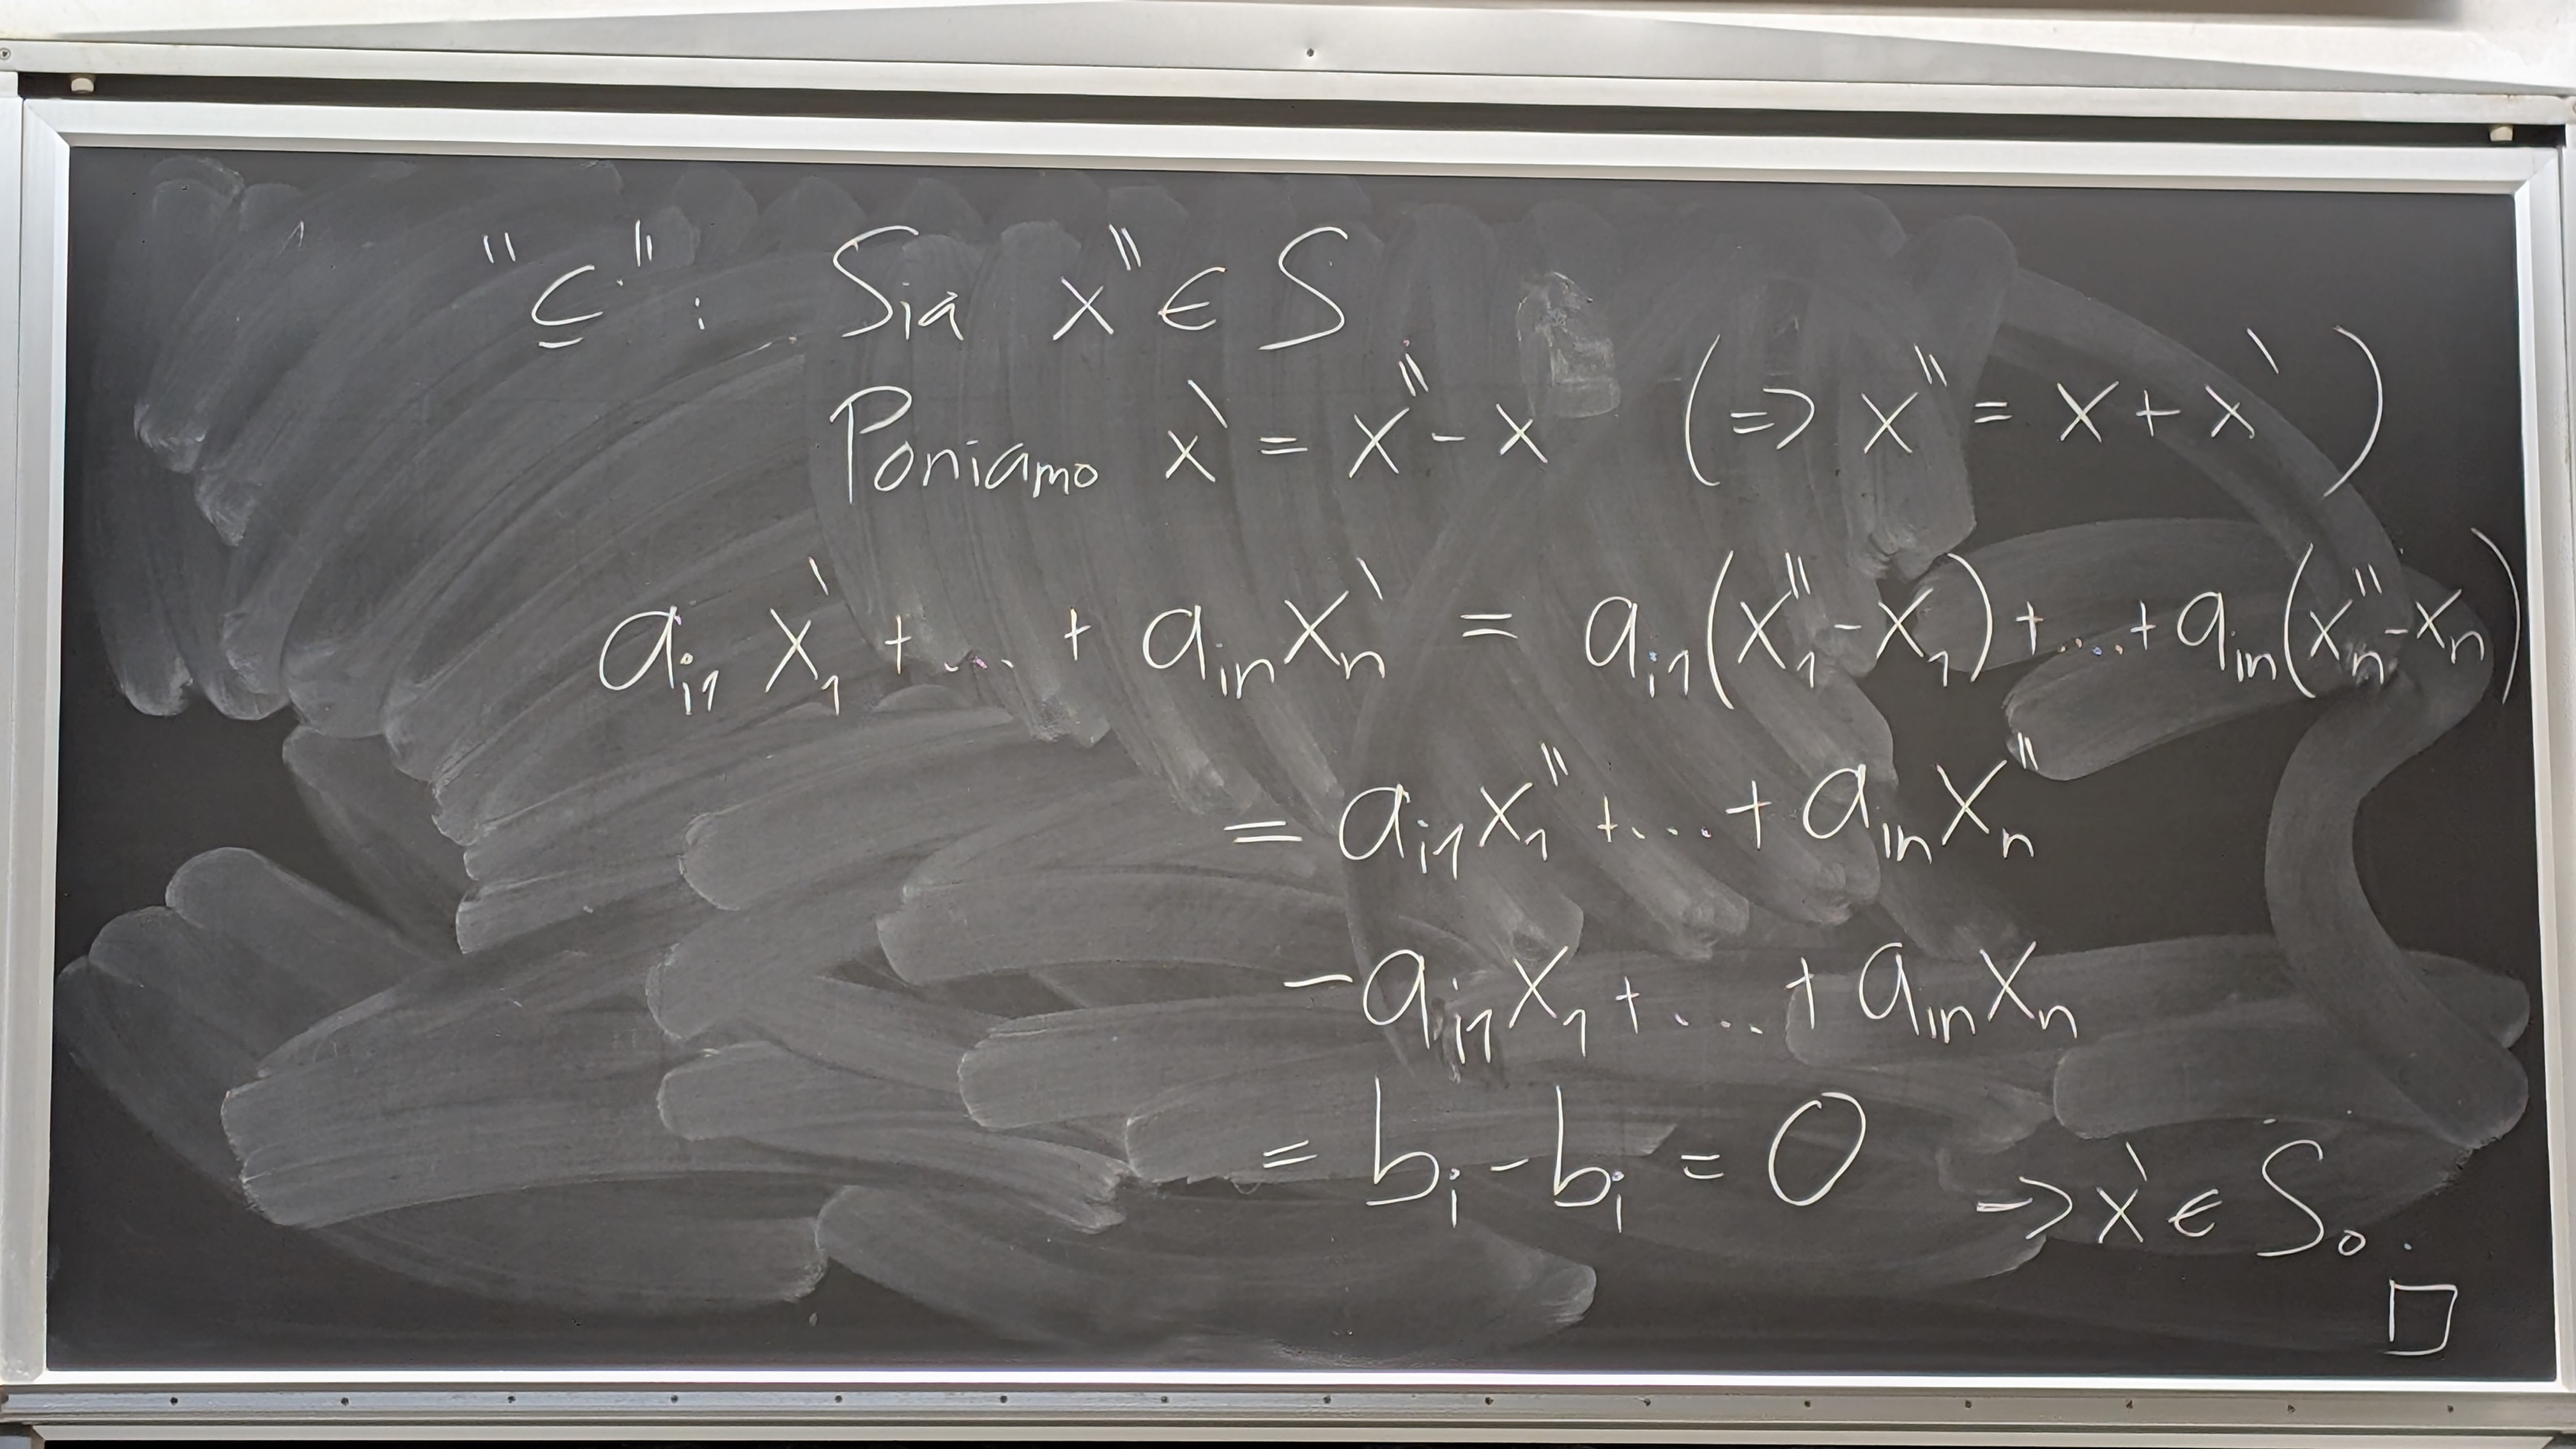 "⊆": Sia x'' ∈ S
Poniamo x' = x'' - x (=> x'' = x + x')
a_{i1} x'_1 + ... + a_{in} x'_n = a_{i1}(x''_1 - x_1) + ... + a_{in}(x''_n - x_n)
= a_{i1} x''_1 + ... + a_{in} x''_n
- a_{i1} x_1 + ... + a_{in} x_n
= b_i - b_i = 0 => x' ∈ S_0.
□